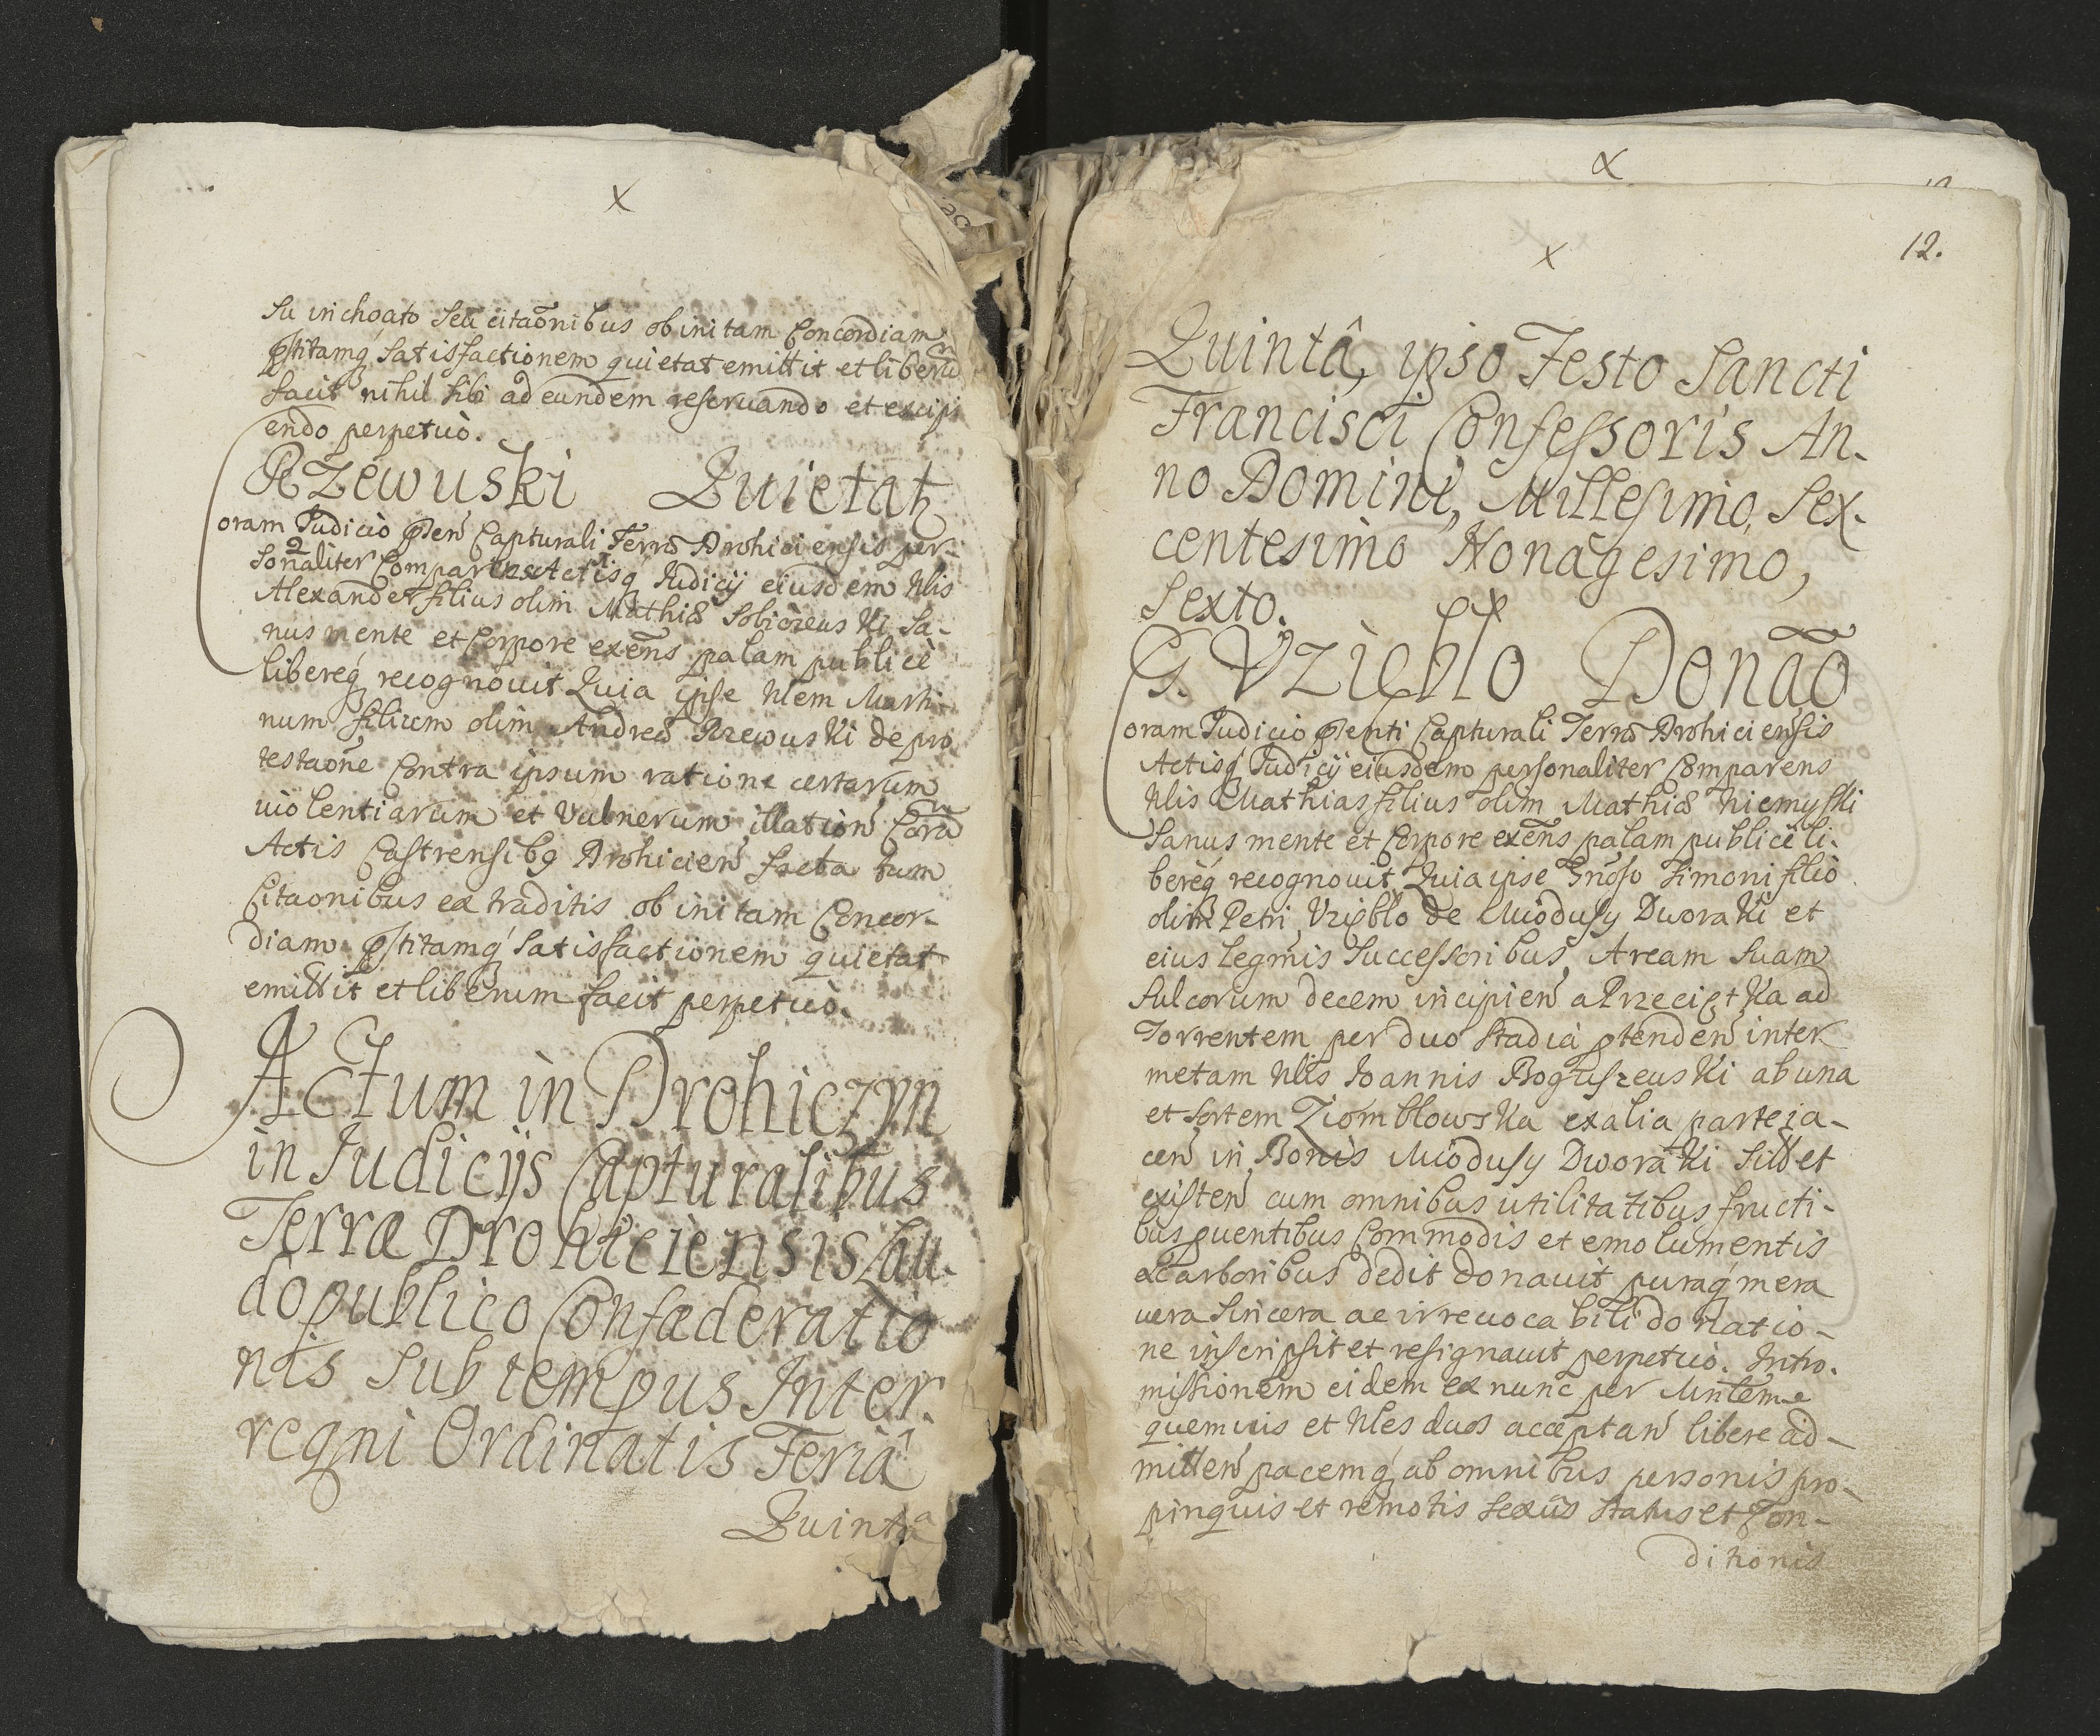 X
su inchoato seu citaōnibus ob initam Concordiam
pstitamq; satisfactionem quietat emittit et liberū
facit nihil sibi ad eundem reservando et excipi
endo perpetuò.
Rzewuski Quietat
Coram Judicio pñen Capturali Terræ Drohiciensis per-
sonaliter Comparens Actisq; Judicij eiusdem Nlis
Alexander filius olim Mathiæ Sobiczeuski sa-
nus mente et Corpore exēns palam publicè
libereq; recognouit Quia ipse Nlem Marti-
num filium olim Andreæ Rzewuski de pro
testaōne Contra ipsum ratione certarum
uiolentiarum et Vulnerum illation Corā
Actis Castrensibq Drohicien facta tum
Citaonibus extraditis ob initam Concor-
diam pstitamq; satisfactionem quietat
emittit et liberum facit perpetuò.
Actum in Drohiczyn
in Judicijs Capturalibus
Terræ Drohiciensis Lau-
do publico Confœderatio
nis sub tempus Inter-
regni Ordinatis Feriâ
Quinta
X
X
12.
Quintâ, ipso Festo Sancti
Francisci Confessoris An-
no Domini, Millesimo, Sex-
centesimo Nonagesimo,
Sexto.
G. Vziębło Donaō
Coram Judicio pñenti Capturali Terræ Drohiciensis
Actisq; Judicij eiusdem personaliter Comparens
Nlis Mathias filius olim Mathiæ Niemyski
Sanus mente et Corpore exēns palam publicè li-
bereq; recognouit, Quia ipse Gnōso Simoni filio
olim Petri Vziębło de Miodusy Dworaki et
eius legmis Successoribus, Aream suam
sulcorum decem incipien a Przeciętka ad
Torrentem per duo stadia ptenden inter
metam Nlis Joannis Boguszeuski ab una
et sortem Ziombłowska ex alia parte ja-
cen in Bonis Miodusy Dworaki sitt et
existen cum omnibus utilitatibus fructi-
bus puentibus Commodis et emolumentis
ac arboribus dedit donauit puraq; mera
uera sincera ac irreuocabili donatio-
ne inscripsit et resignauit perpetuò. Intro-
missionem eidem ex nunc per Mntēm
quemuis et Nles duos acceptan libere ad-
mitten pacemq; ab omnibus personis pro-
pinquis et remotis sexûs status et Con-
ditionis